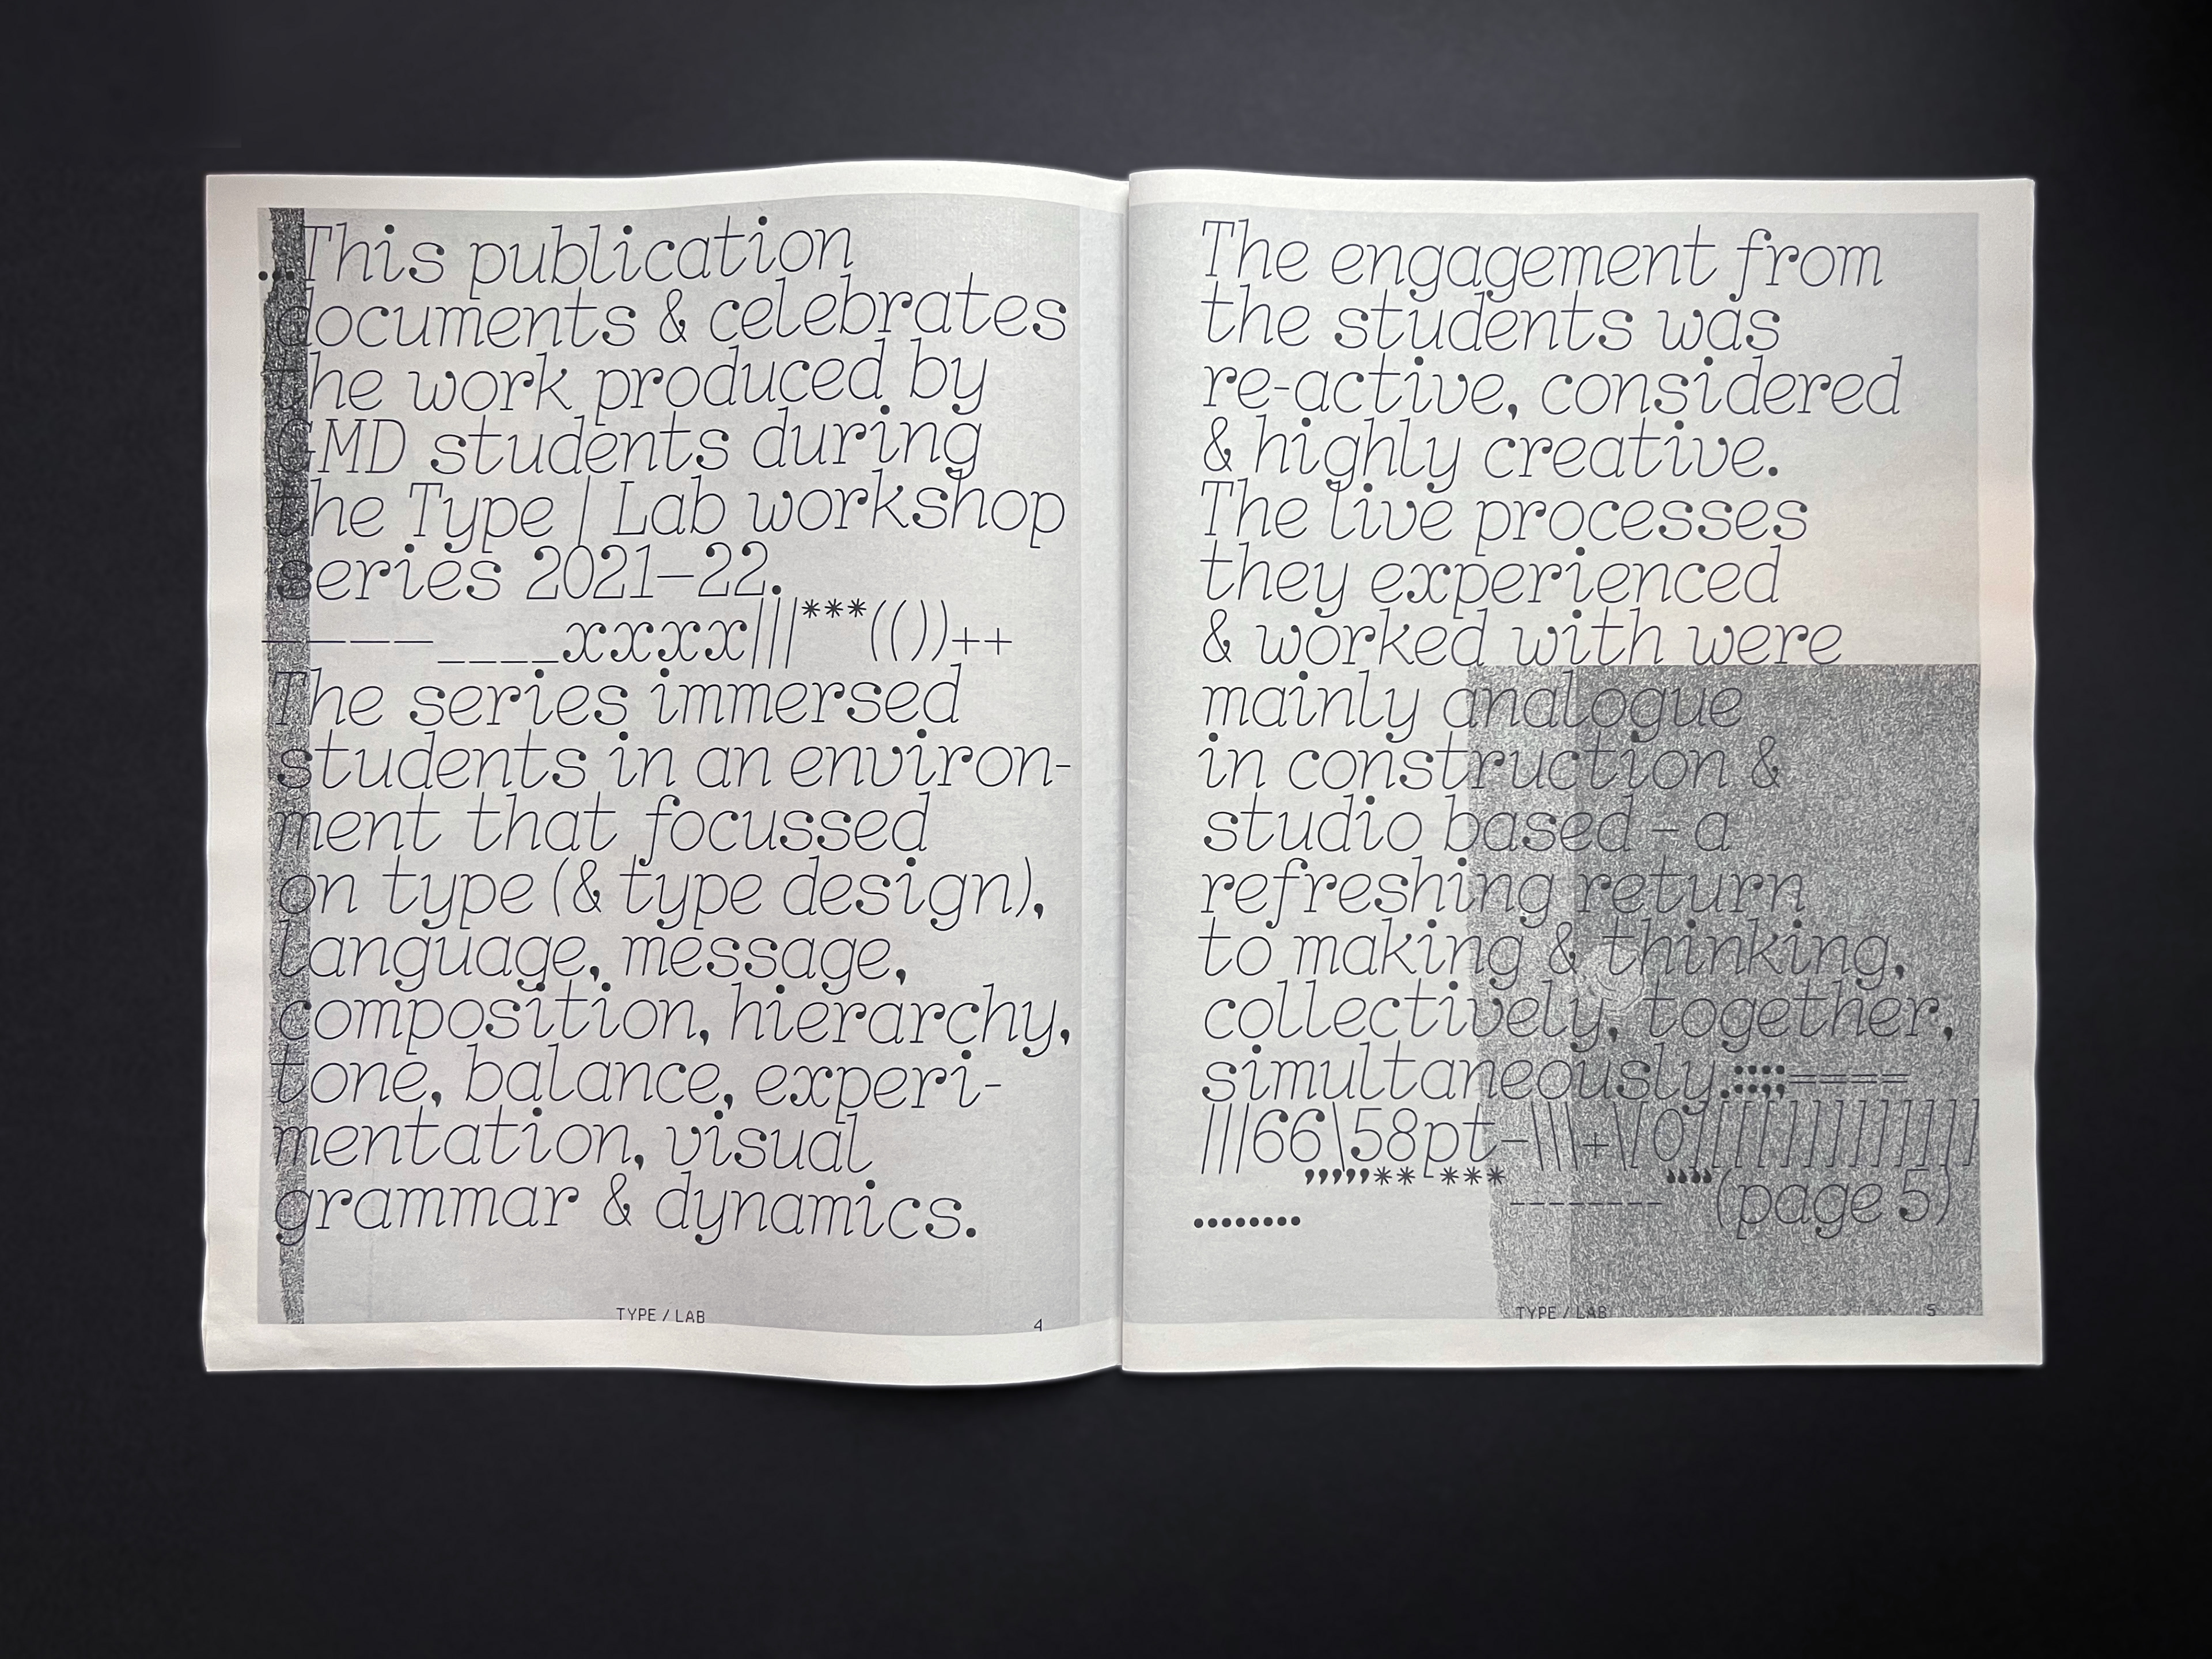 ...This publication
documents & celebrates
the work produced by
GMD students during
the Type | Lab workshop
series 2021—22.
————____xxxx|||***(())++
The series immersed
students in an environ-
ment that focussed
on type (& type design),
language, message,
composition, hierarchy,
tone, balance, experi-
mentation, visual
grammar & dynamics.
TYPE / LAB
4
The engagement from
the students was
re-active, considered
& highly creative.
The live processes
they experienced
& worked with were
mainly analogue
in construction &
studio based – a
refreshing return
to making & thinking,
collectively, together,
simultaneously.;;;;====
|||66\58pt-\\\+\
(page 5)
........
TYPE / LAB
5